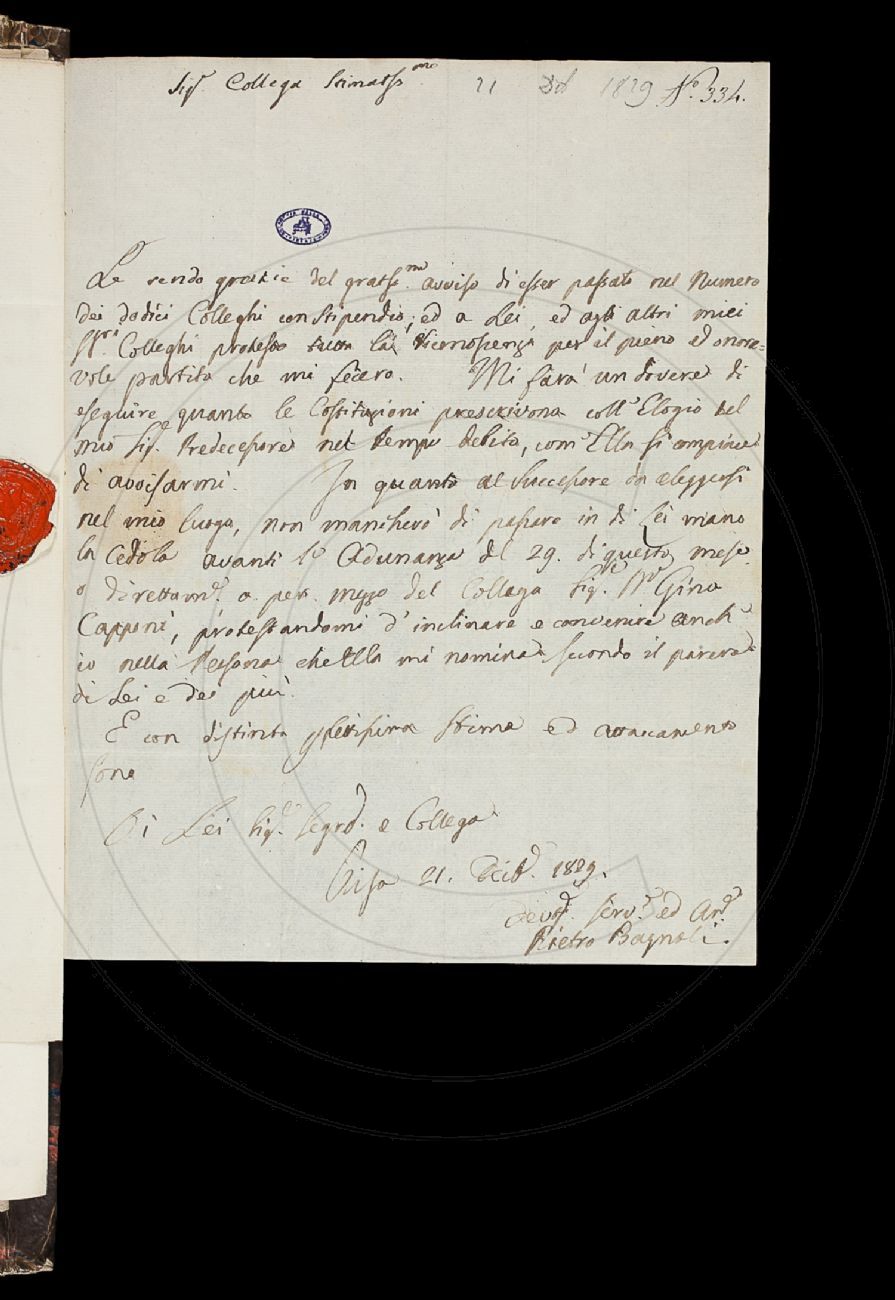 Sig.r Collega Stimatss.mo 21 Dbr 1829 N.o 334.
Le rendo grazie del gratss.mo avviso di esser passato nel Numero
dei dodici Colleghi con Stipendio; ed a Lei, ed agli altri miei
SS.ri Colleghi protesto tutta la riconoscenza per il pieno ed onore=
vole partito che mi fecero. Mi sarà un dovere di
eseguire quanto le Costituzioni prescrivono coll'Elogio del
mio Sig.e Predecessore nel tempo debito, com'Ella si compiace
di avvisarmi. In quanto al Successore da eleggersi
nel mio luogo, non mancherò di passare in di Lei mano
la Cedola avanti l'Adunanza del 29. di questo mese,
o direttam.e o per mezzo del Collega Sig.re M.e Gino
Capponi, protestandomi d'inclinare e convenire anch'
io nella Persona che Ella mi nomina secondo il parere
di Lei e dei più.
E con distinta stima ed attaccamento
sono
Di Lei Sig.e Segr.o e Collega
Pisa 21. Dicib.e 1829.
Devot. Serv.e ed Am.o
Pietro Bagnoli.